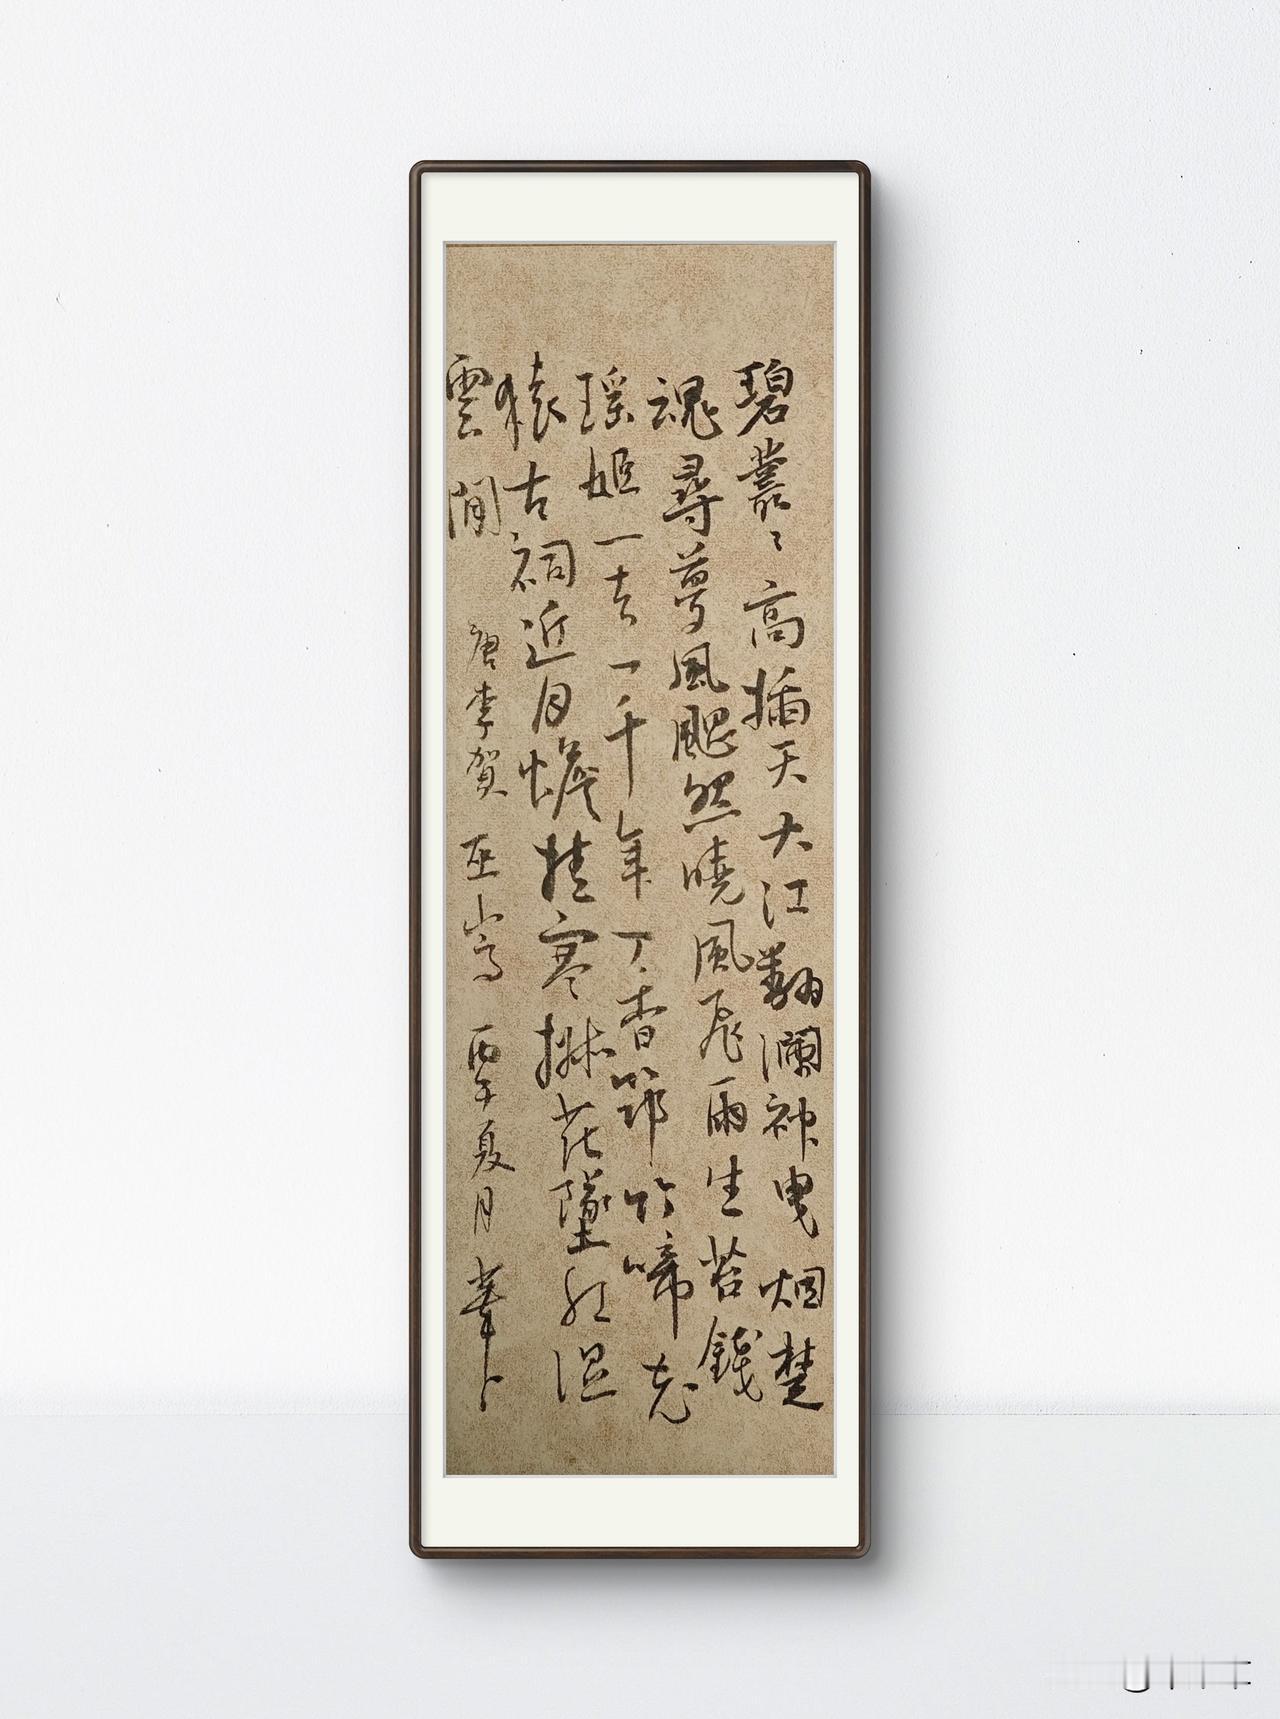 碧叢〻高插天大江翻瀾神曳烟楚
魂尋夢風颸然曉風飛雨生苔錢
瑤姬一去一千年丁香筇竹啼老
猿古祠近月蟾桂寒椒花墜紅溼
雲間
唐李賀巫山高丙午夏月